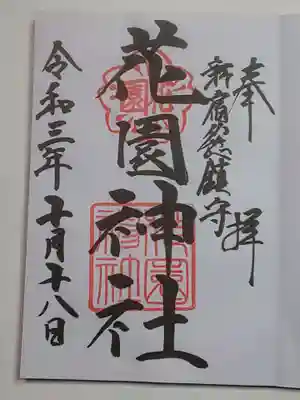 奉拝
新宿総鎮守
花園神社
令和三年十月十八日
花園
花園神社